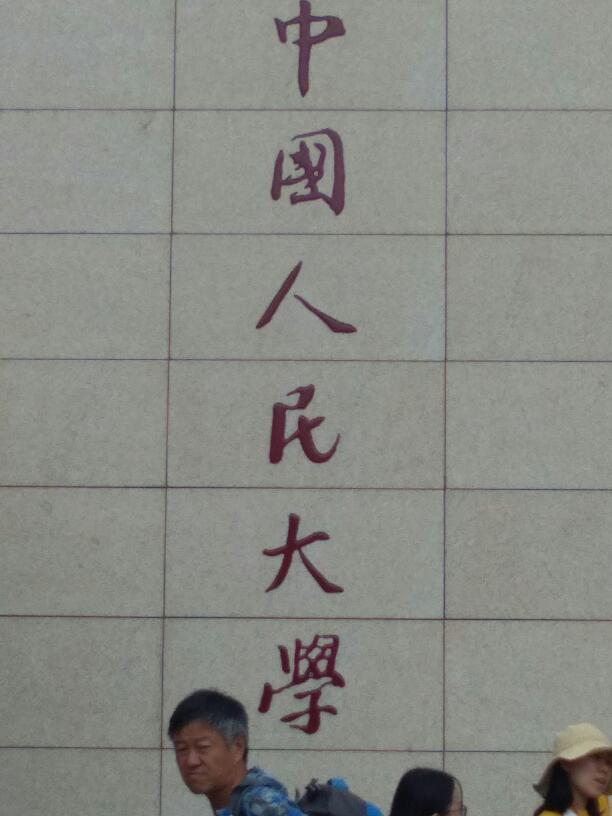 中國人民大學